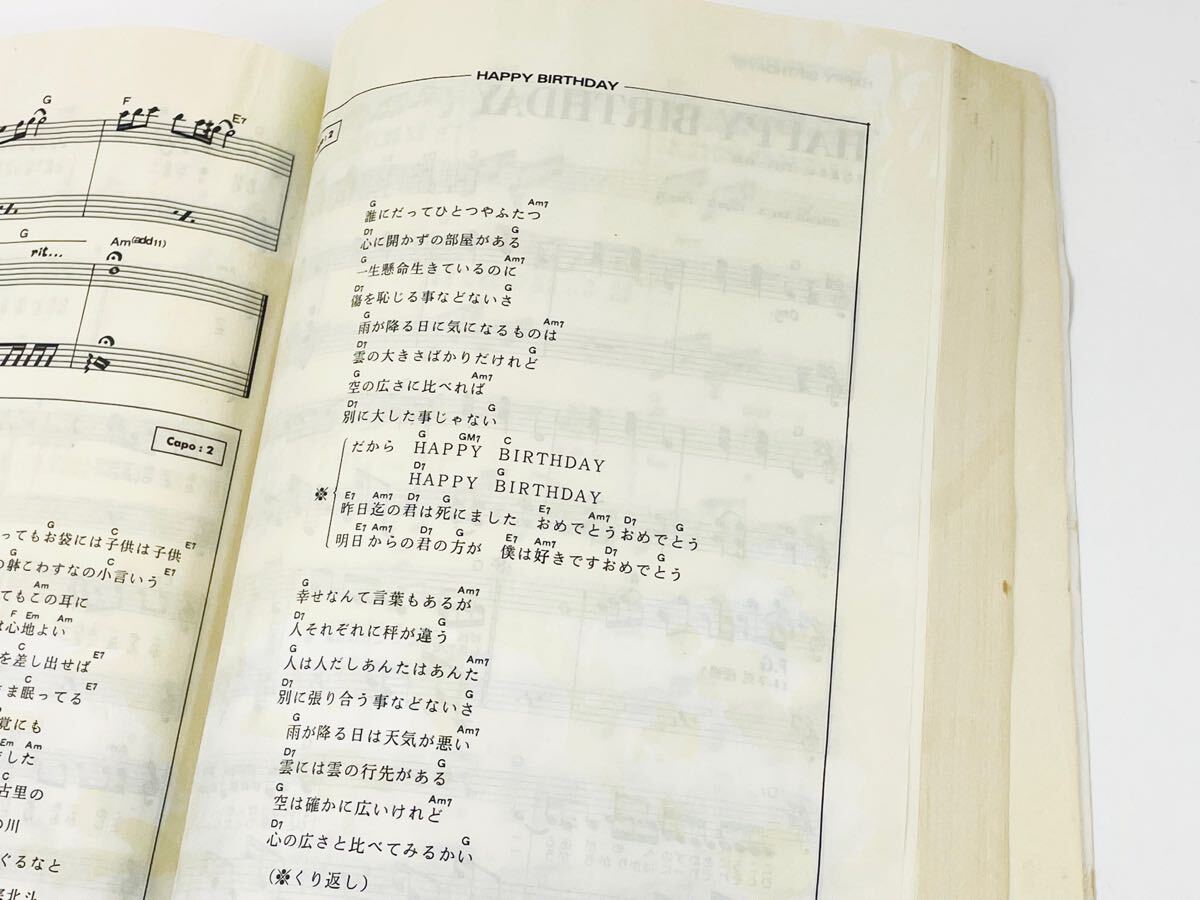 G F E7
G
rit...
Am(add11)
Capo : 2
G C E7
ってもお袋には子供は子供
G C E7
の躰こわすなの小言いう
Am
てもこの耳に
F Em Am
は心地よい
C E7
を差し出せば
C E7
ま眠ってる
覚にも
Em Am
ました
C
古里の
の川
ぐるなと
北斗
HAPPY BIRTHDAY
: 2
G Am7
誰にだってひとつやふたつ
D7 G
心に開かずの部屋がある
G Am7
一生懸命生きているのに
D7 G
傷を恥じる事などないさ
G Am7
雨が降る日に気になるものは
D7 G
雲の大きさばかりだけれど
G Am7
空の広さに比べれば
D7 G
別に大した事じゃない
G GM7 C
だから HAPPY BIRTHDAY
D7 G
HAPPY BIRTHDAY
※
E7 Am7 D7 G E7 Am7 D7 G
昨日迄の君は死にました おめでとうおめでとう
E7 Am7 D7 G E7 Am7 D7 G
明日からの君の方が 僕は好きですおめでとう
G Am7
幸せなんて言葉もあるが
D7 G
人それぞれに秤が違う
G Am7
人は人だしあんたはあんた
D7 G
別に張り合う事などないさ
G Am7
雨が降る日は天気が悪い
D7 G
雲には雲の行先がある
G Am7
空は確かに広いけれど
D7 G
心の広さと比べてみるかい
(※くり返し)